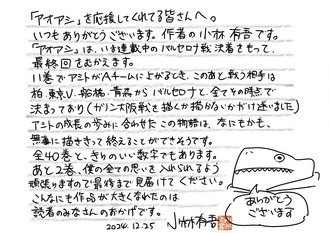 「アオアシ」を応援してくれてる皆さんへ。
いつもありがとうございます。作者の小林有吾です。
「アオアシ」は、いま連載中のバルセロナ戦決着をもって、
最終回をむかえます。
11巻でアシトがAチームに上がるとき、このあと戦う相手は
柏・東京V・船橋・青森からバルセロナと、全てその時点で
決まっており(ガリン大阪戦を描くか描かないかだけ迷いました)
アシトの成長の歩みに合わせたこの物語は、なにもかも、
無事に描ききって終えることができそうです。
全40巻と、きりのいい数字でもあります。
あと2巻、僕の全ての思いを入れられるよう
頑張りますので最終まで見届けてください。
こんなにも作品が大きくなれたのは
読者のみなさんのおかげです。
2024.12.25 小林有吾
ありがとう
ございます